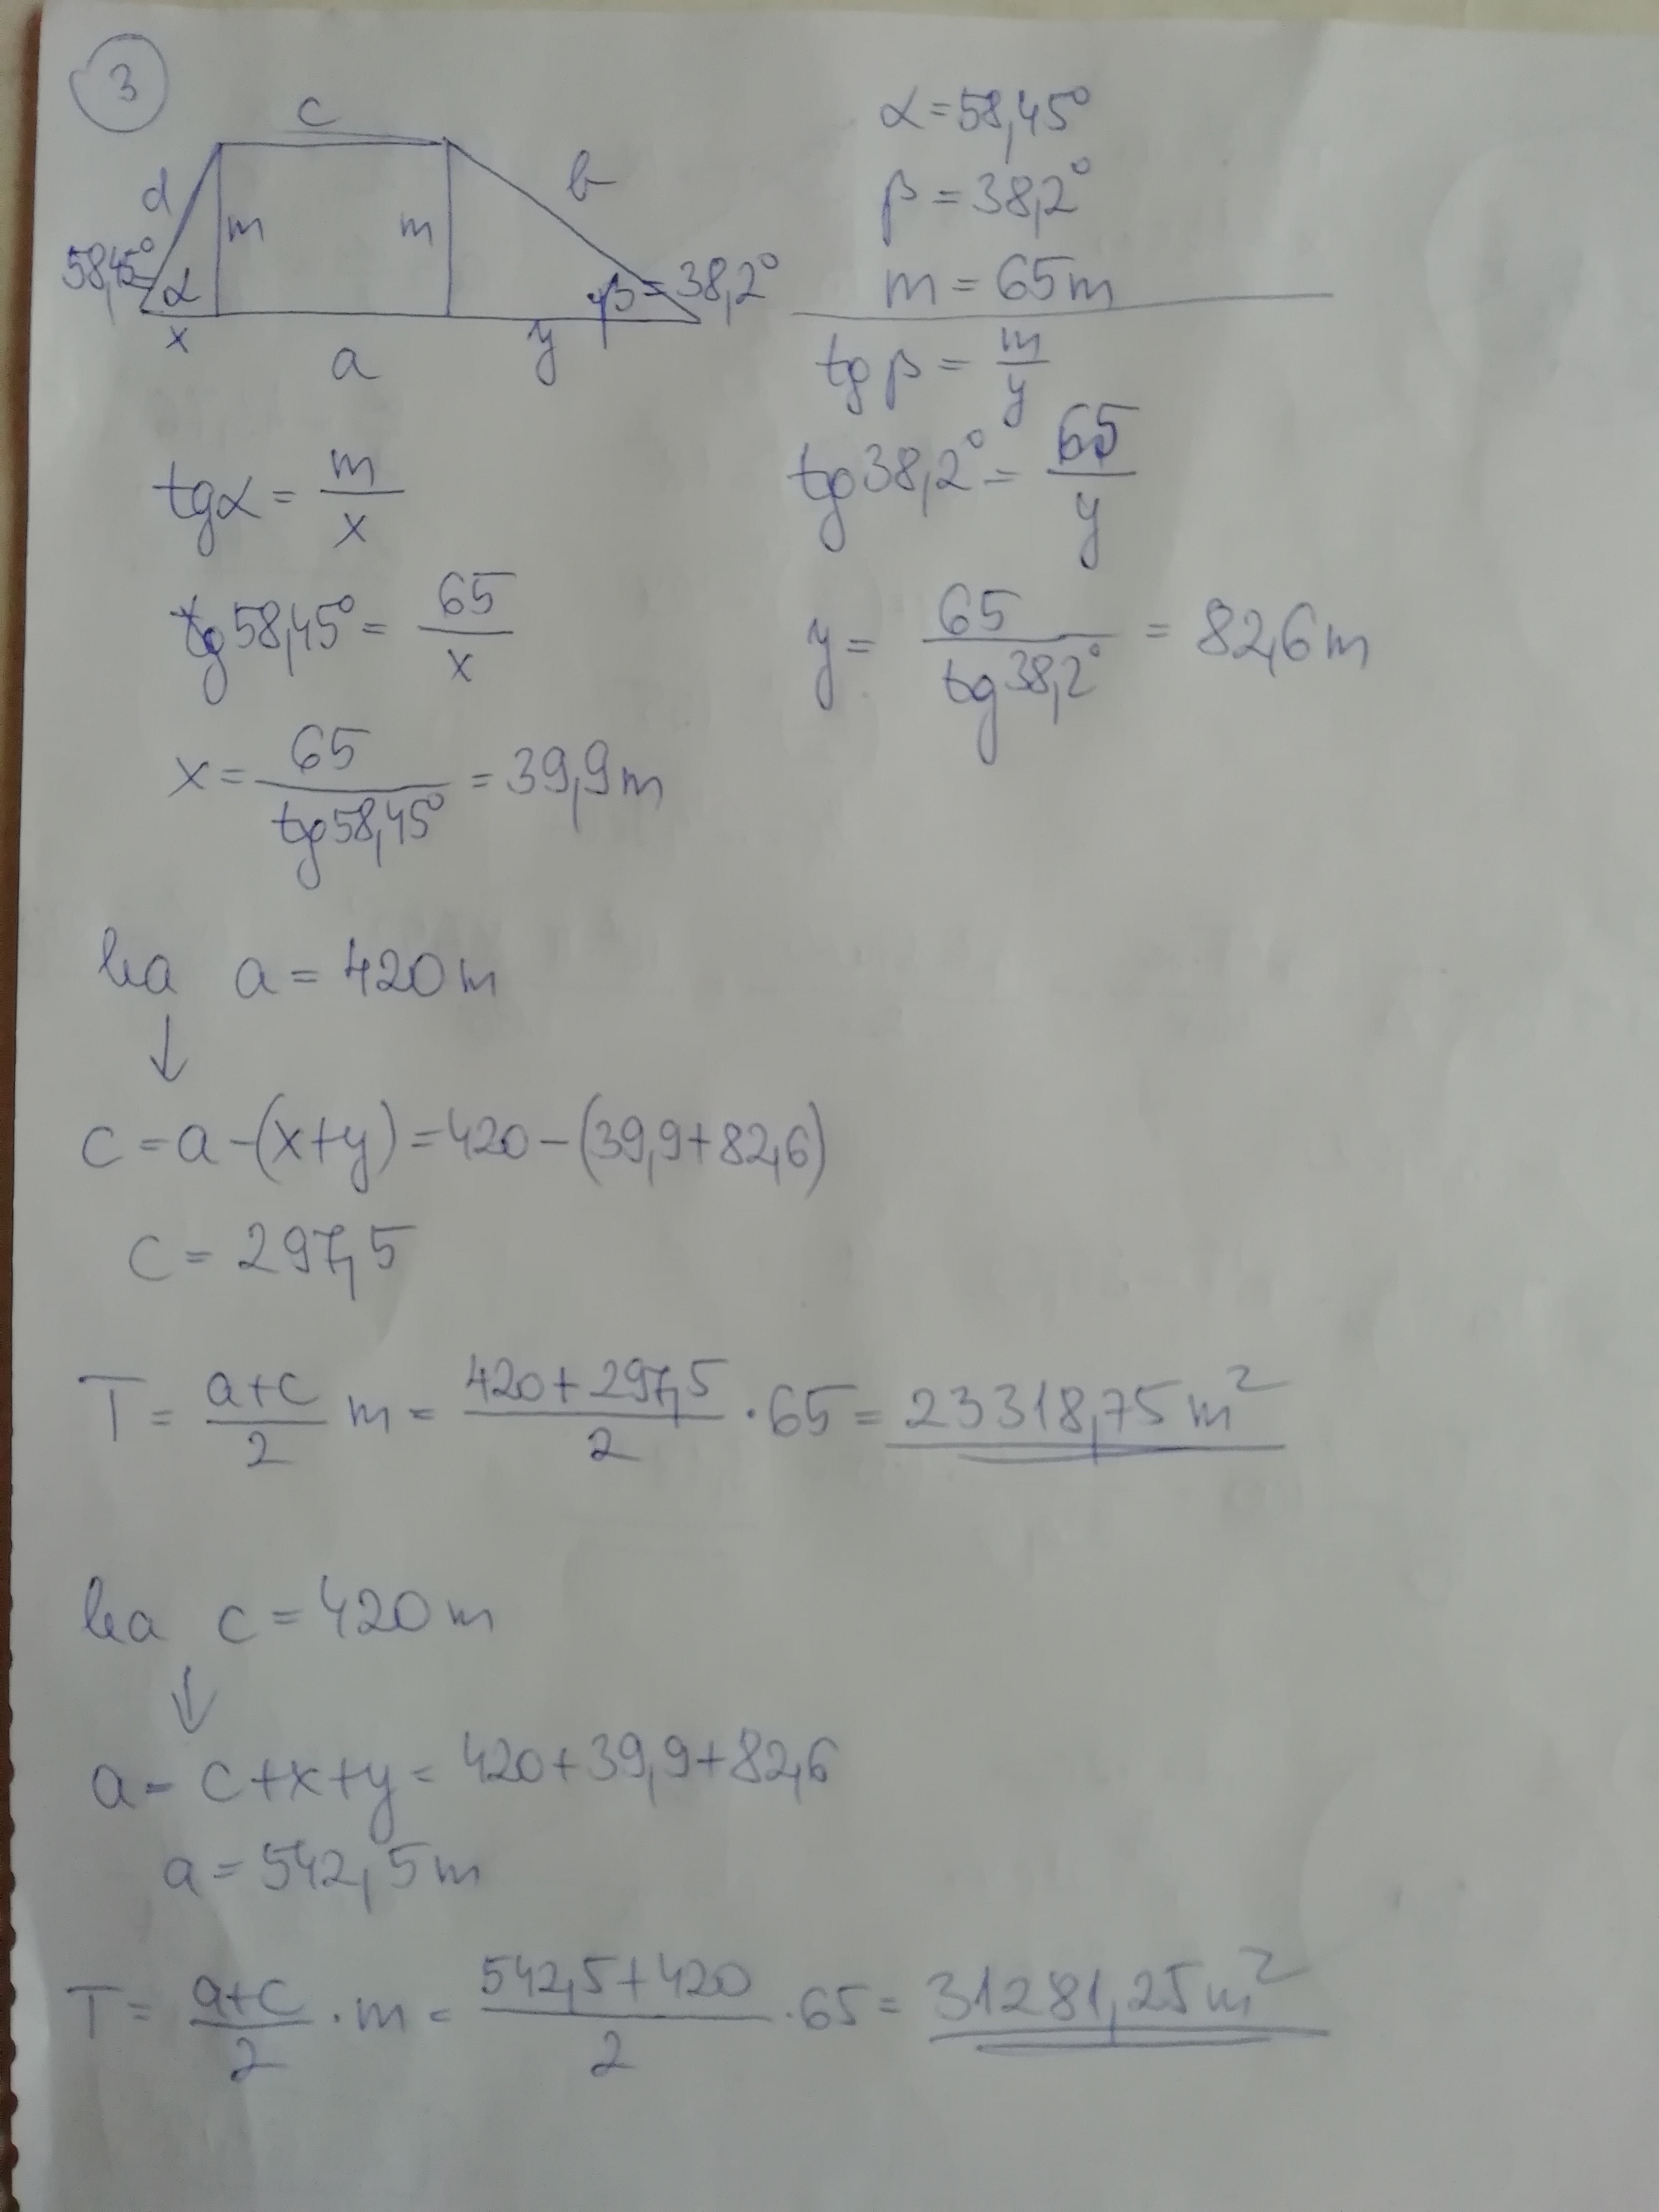 3
c
d
b
m
m
58,45°
α
β=38,2°
x
y
a
α=58,45°
β=38,2°
m=65m
tgβ=m/y
tg38,2°=65/y
y=65/tg38,2°=82,6m
tgα=m/x
tg58,45°=65/x
x=65/tg58,45°=39,9m
ha a=420m
↓
c=a-(x+y)=420-(39,9+82,6)
c=297,5
T=a+c/2 m=420+297,5/2·65=23318,75m²
ha c=420m
↓
a=c+x+y=420+39,9+82,6
a=542,5m
T=a+c/2·m=542,5+420/2·65=31281,25m²